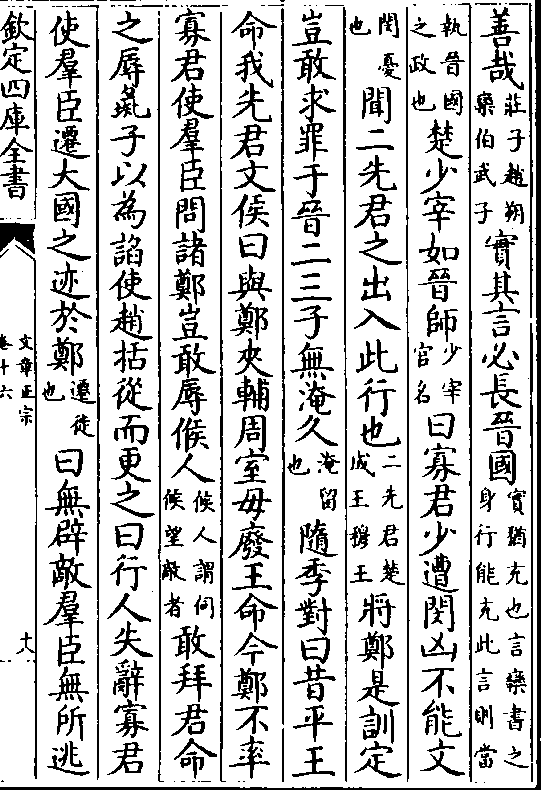 善哉莊子趙朔欒伯武子實其言必長晉國實猶充也言欒書之身行能充此言則當
執晉國之政也楚少宰如晉師少宰官名曰寡君少遭閔凶不能文
閔憂也聞二先君之出入此行也二先君楚成王穆王將鄭是訓定
豈敢求罪于晉二三子無淹久淹留也隨季對曰昔平王
命我先君文侯曰與鄭夾輔周室毋廢王命今鄭不率
寡君使羣臣問諸鄭豈敢辱候人候人謂伺候望敵者敢拜君命
之辱彘子以為諂使趙括從而更之曰行人失辭寡君
使羣臣遷大國之迹於鄭遷徙也曰無辟敵羣臣無所逃
欽定四庫全書
文章正宗
卷十六
十八